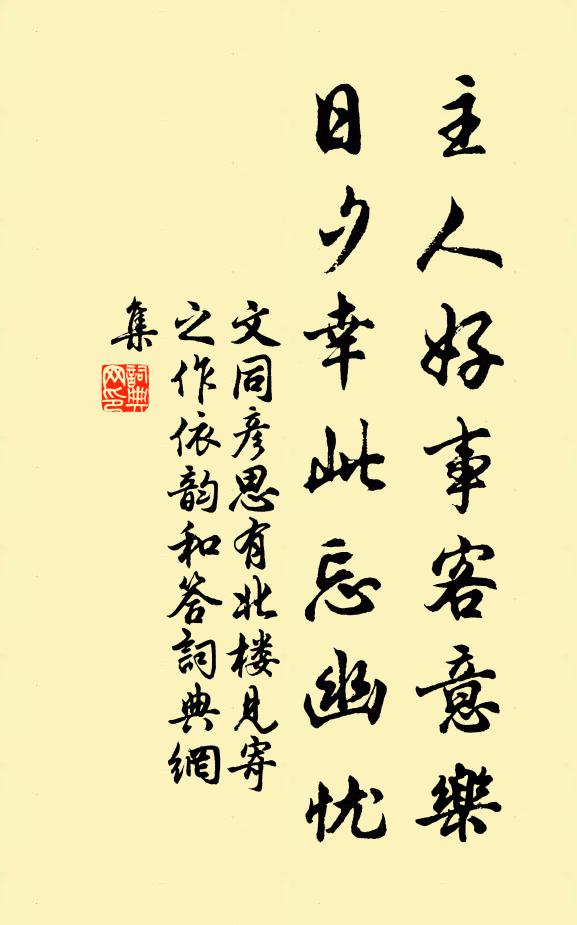 主人好事客意樂
日夕幸此忘幽忧
文同彦思有北楼见寄
之作依韵和答词典網
集
詞典網印